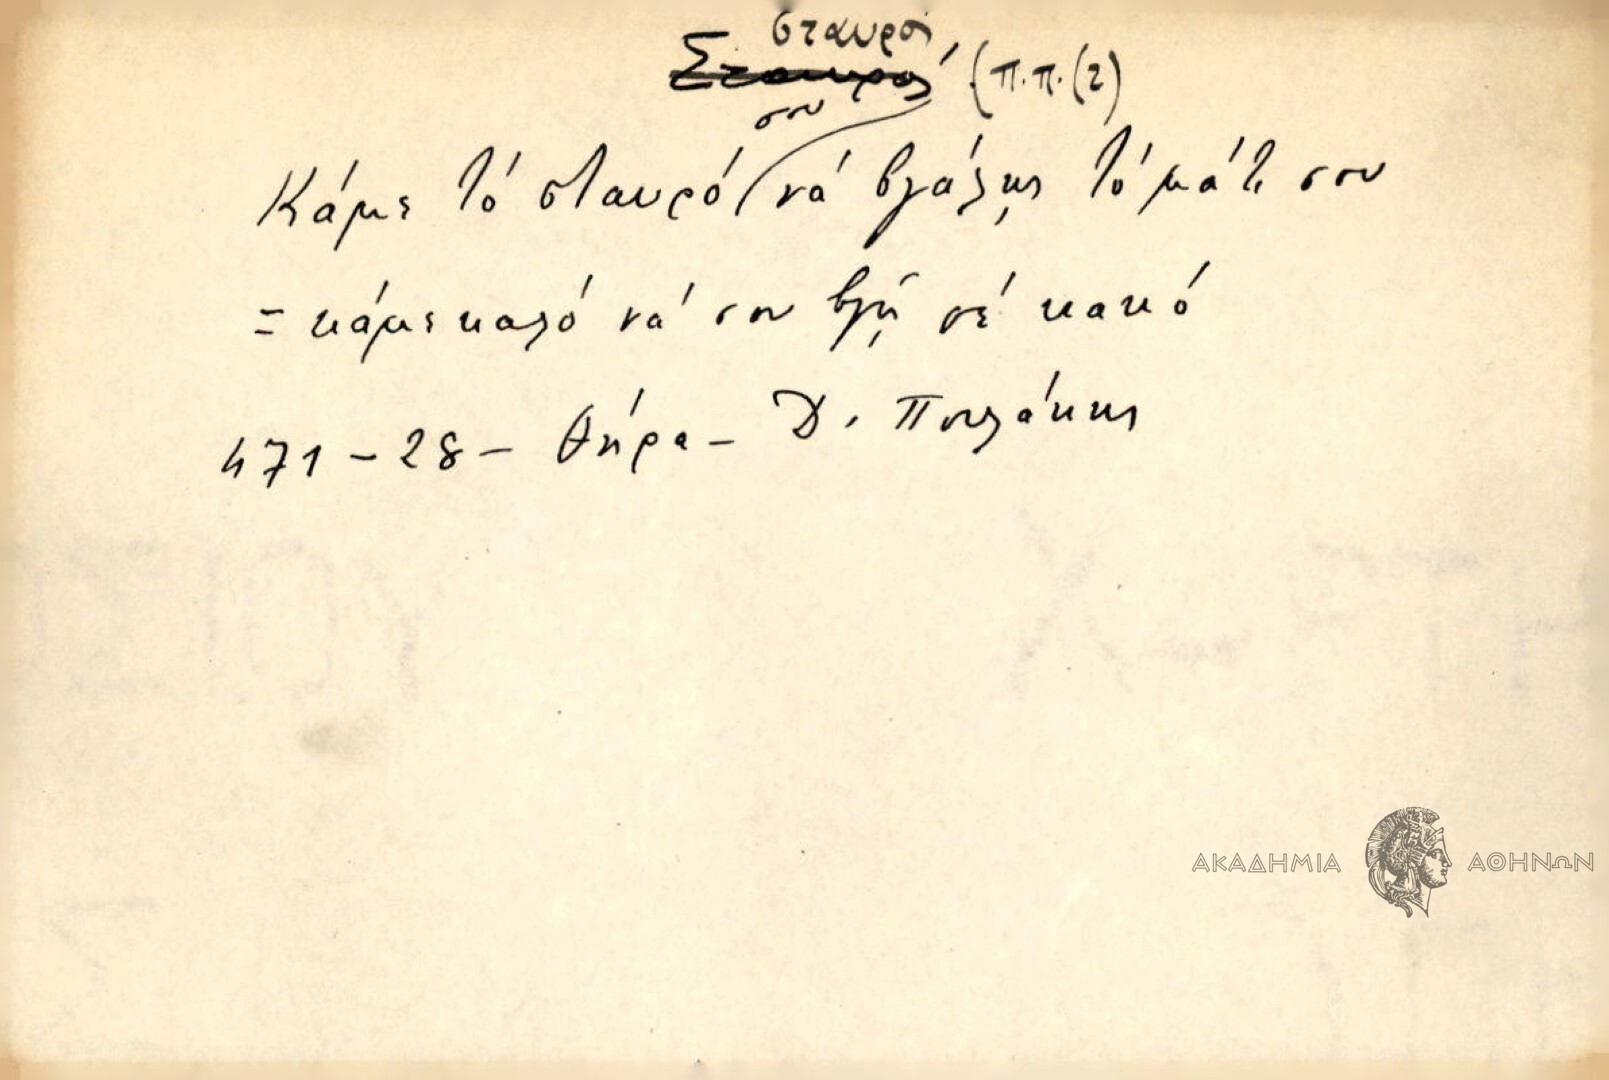 σταυρός
Σταυρός (π.π. (2)
σου
Κάμε τό σταυρό νά βγάλῃς τό μάτι σου
= κάμε καλό νά σου βγῇ σέ κακό
471 - 28 - Θήρα - Δ. Πουλάκης
ΑΚΑΔΗΜΙΑ ΑΘΗΝΩΝ